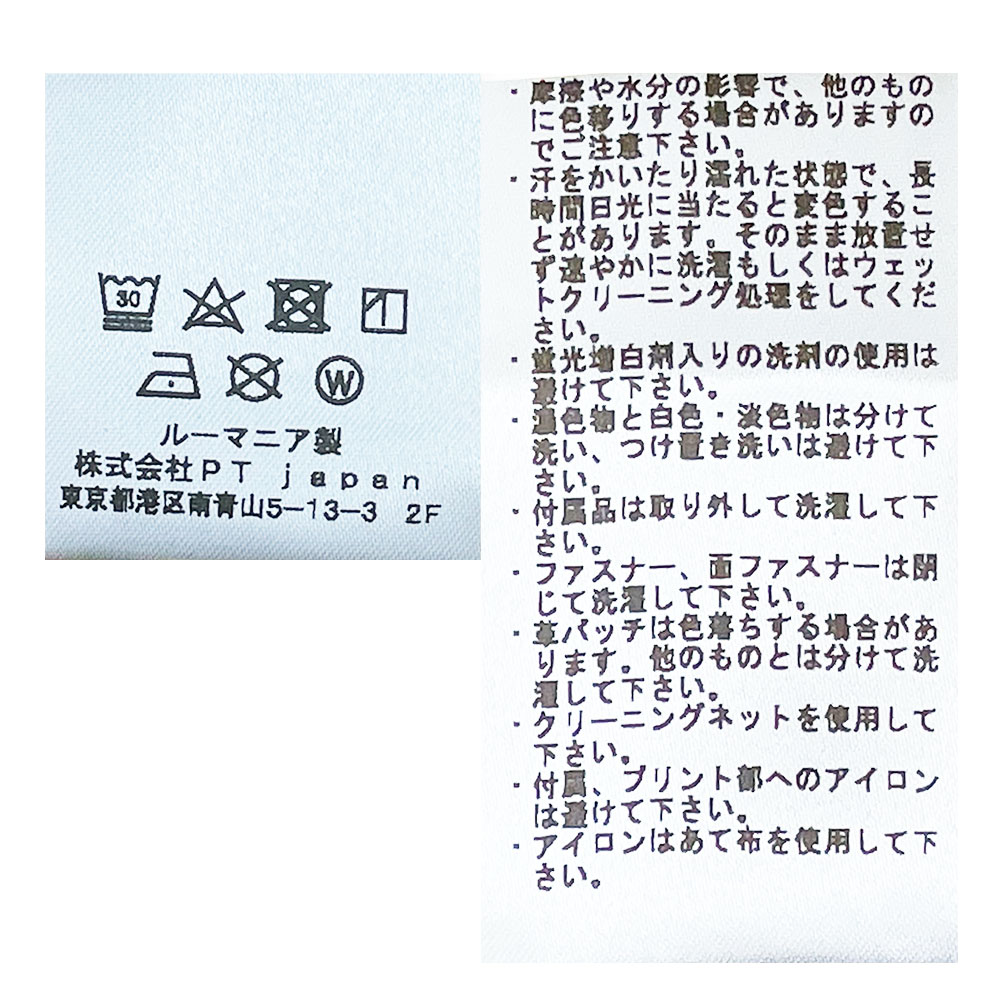 30
W
ルーマニア製
株式会社ＰＴ ｊａｐａｎ
東京都港区南青山5−13−3 2F
・摩擦や水分の影響で、他のもの
に色移りする場合がありますの
でご注意下さい。
・汗をかいたり濡れた状態で、長
時間日光に当たると変色するこ
とがあります。そのまま放置せ
ず速やかに洗濯もしくはウェッ
トクリーニング処理をしてくだ
さい。
・蛍光増白剤入りの洗剤の使用は
避けて下さい。
・濃色物と白色・淡色物は分けて
洗い、つけ置き洗いは避けて下
さい。
・付属品は取り外して洗濯して下
さい。
・ファスナー、面ファスナーは閉
じて洗濯して下さい。
・革パッチは色落ちする場合があ
ります。他のものとは分けて洗
濯して下さい。
・クリーニングネットを使用して
下さい。
・付属、プリント部へのアイロン
は避けて下さい。
・アイロンはあて布を使用して下
さい。